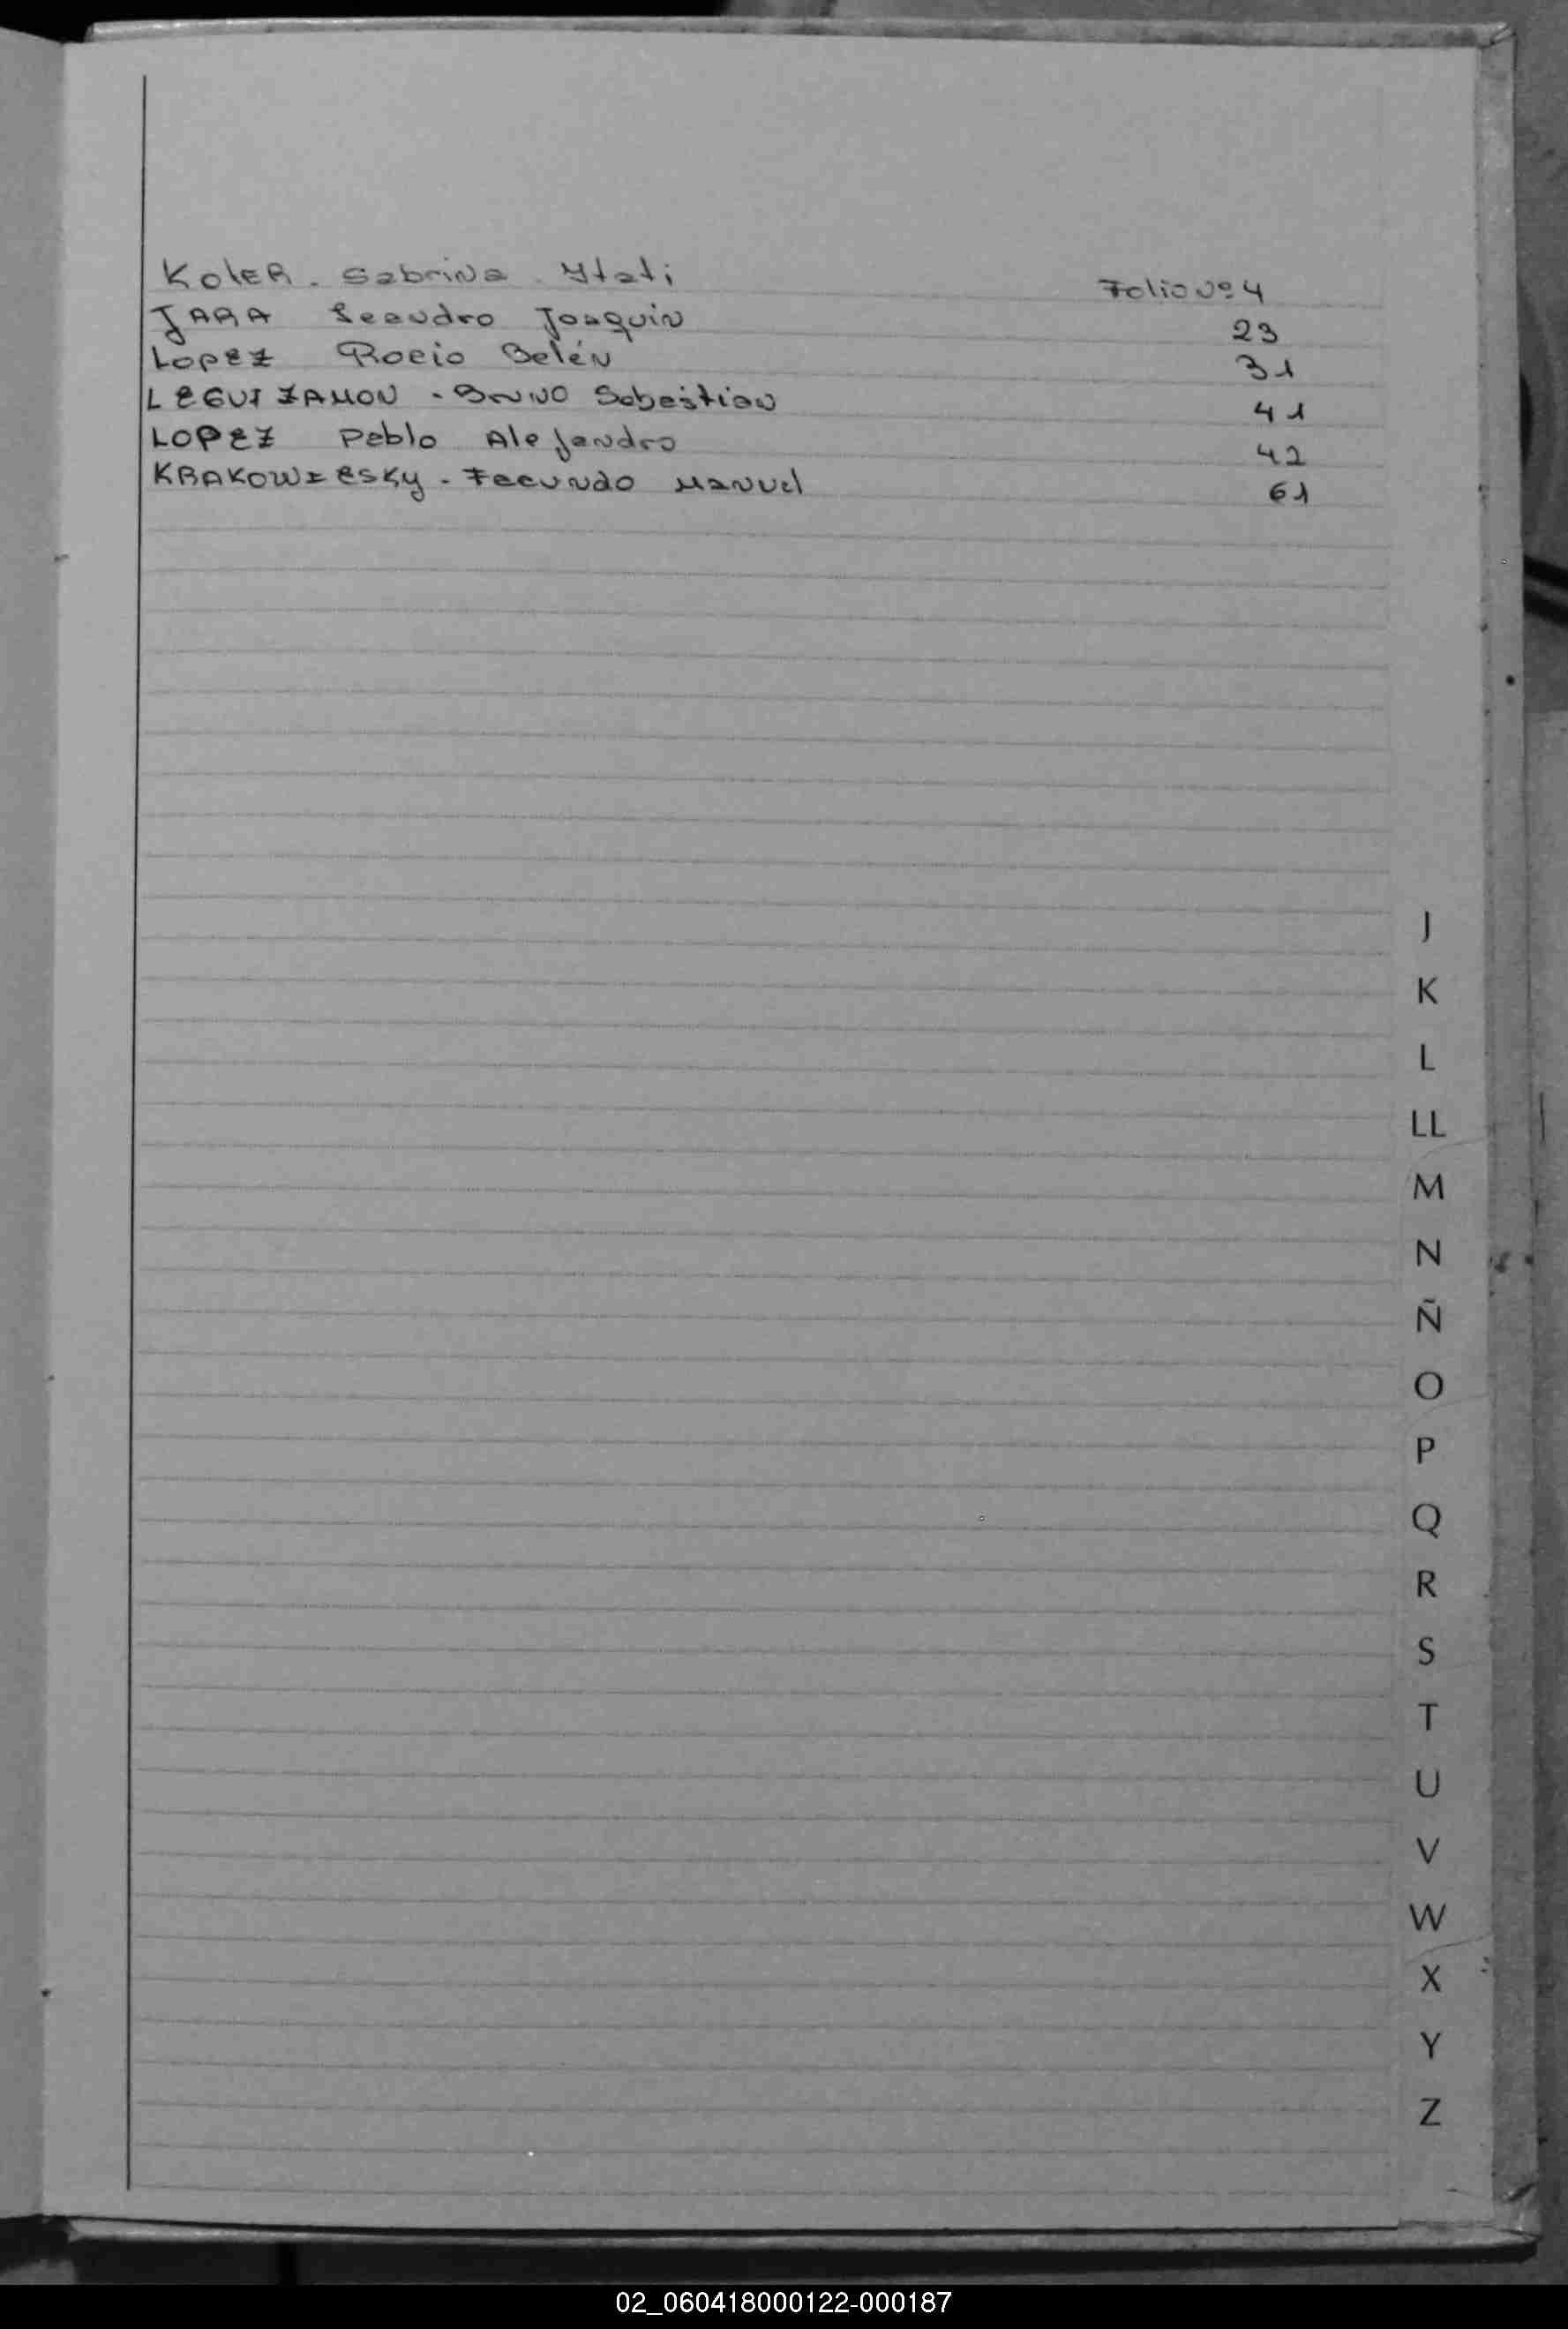 Koler. Sabrina Itati Folio Nº 4
JARA Leandro Joaquin 23
Lopez Rocio Belén 31
LEGUIZAMON - Bruno Sebastian 41
LOPEZ Pablo Alejandro 42
KRAKOWIESKY - Facundo Manuel 61
J
K
L
LL
M
N
Ñ
O
P
Q
R
S
T
U
V
W
X
Y
Z
02_060418000122-000187